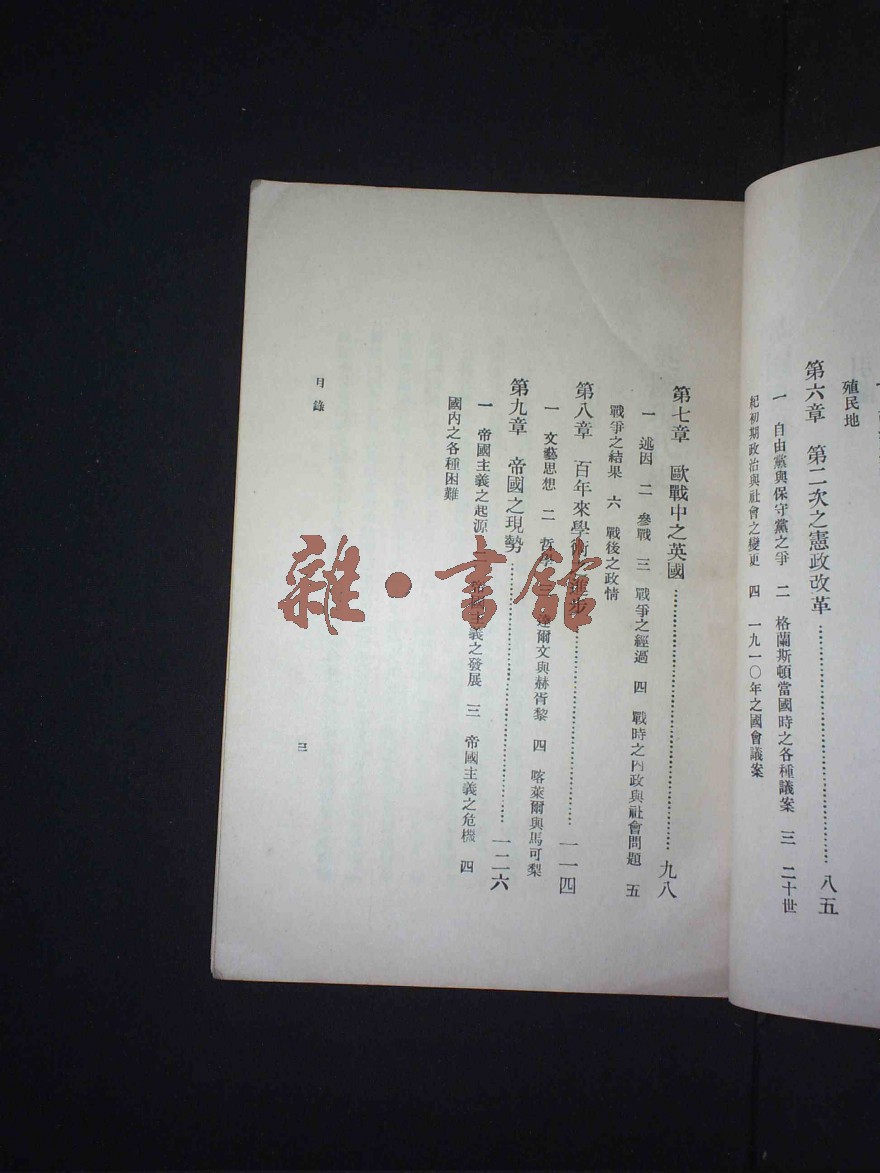 殖民地
第六章　第二次之憲政改革……八五
一　自由黨與保守黨之爭　二　格蘭斯頓當國時之各種議案　三　二十世
紀初期政治與社會之變更　四　一九一〇年之國會議案
第七章　歐戰中之英國……九八
一　述因　二　參戰　三　戰爭之經過　四　戰時之內政與社會問題　五
戰爭之結果　六　戰後之政情
第八章　百年來學術之進步……一一四
一　文藝思想　二　哲學　三　達爾文與赫胥黎　四　喀萊爾與馬可梨
第九章　帝國之現勢……一二六
一　帝國主義之起源　二　帝國主義之發展　三　帝國主義之危機　四
國內之各種困難
目錄
三
雜·書館